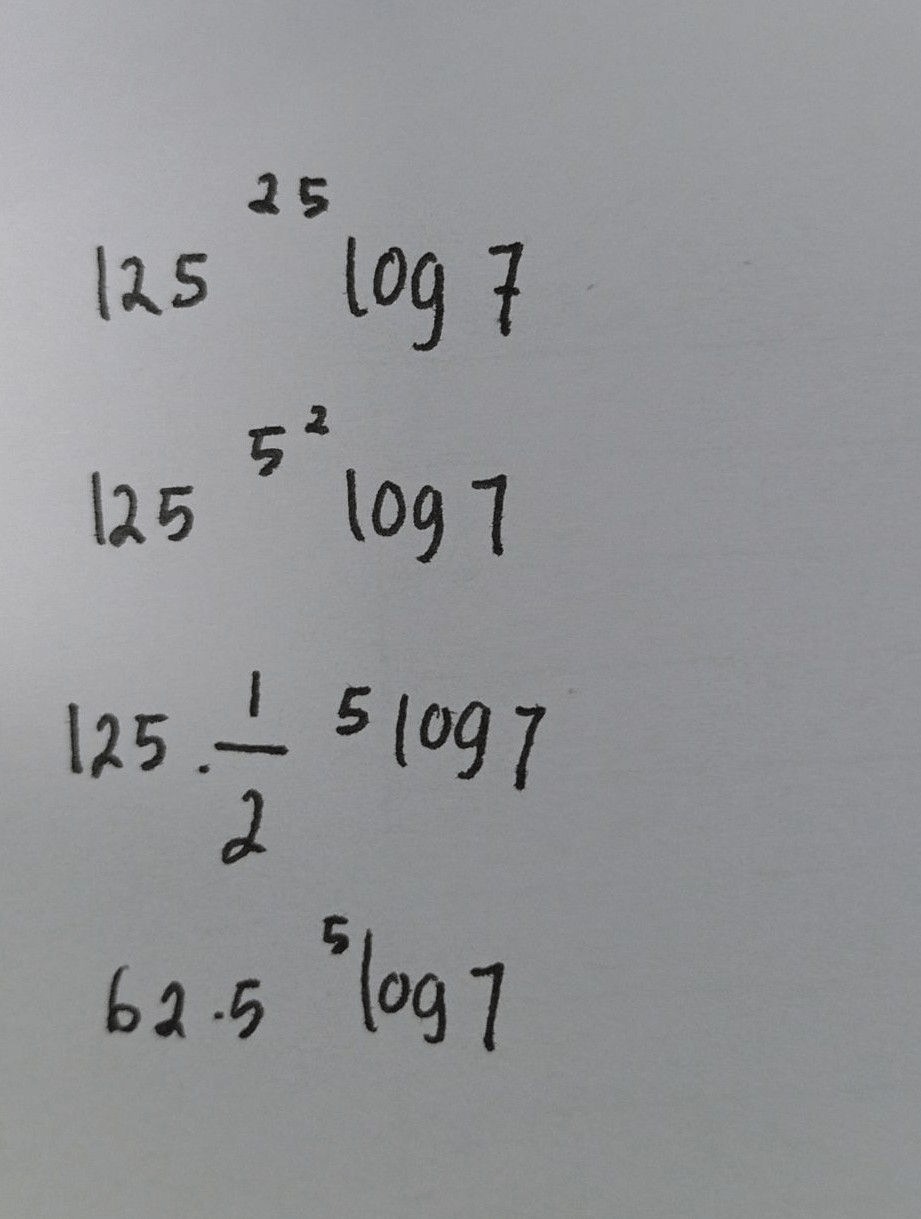 125 ²⁵log 7
125 ^{5²}log 7
125 . 1/2 ⁵log 7
62.5 ⁵log 7